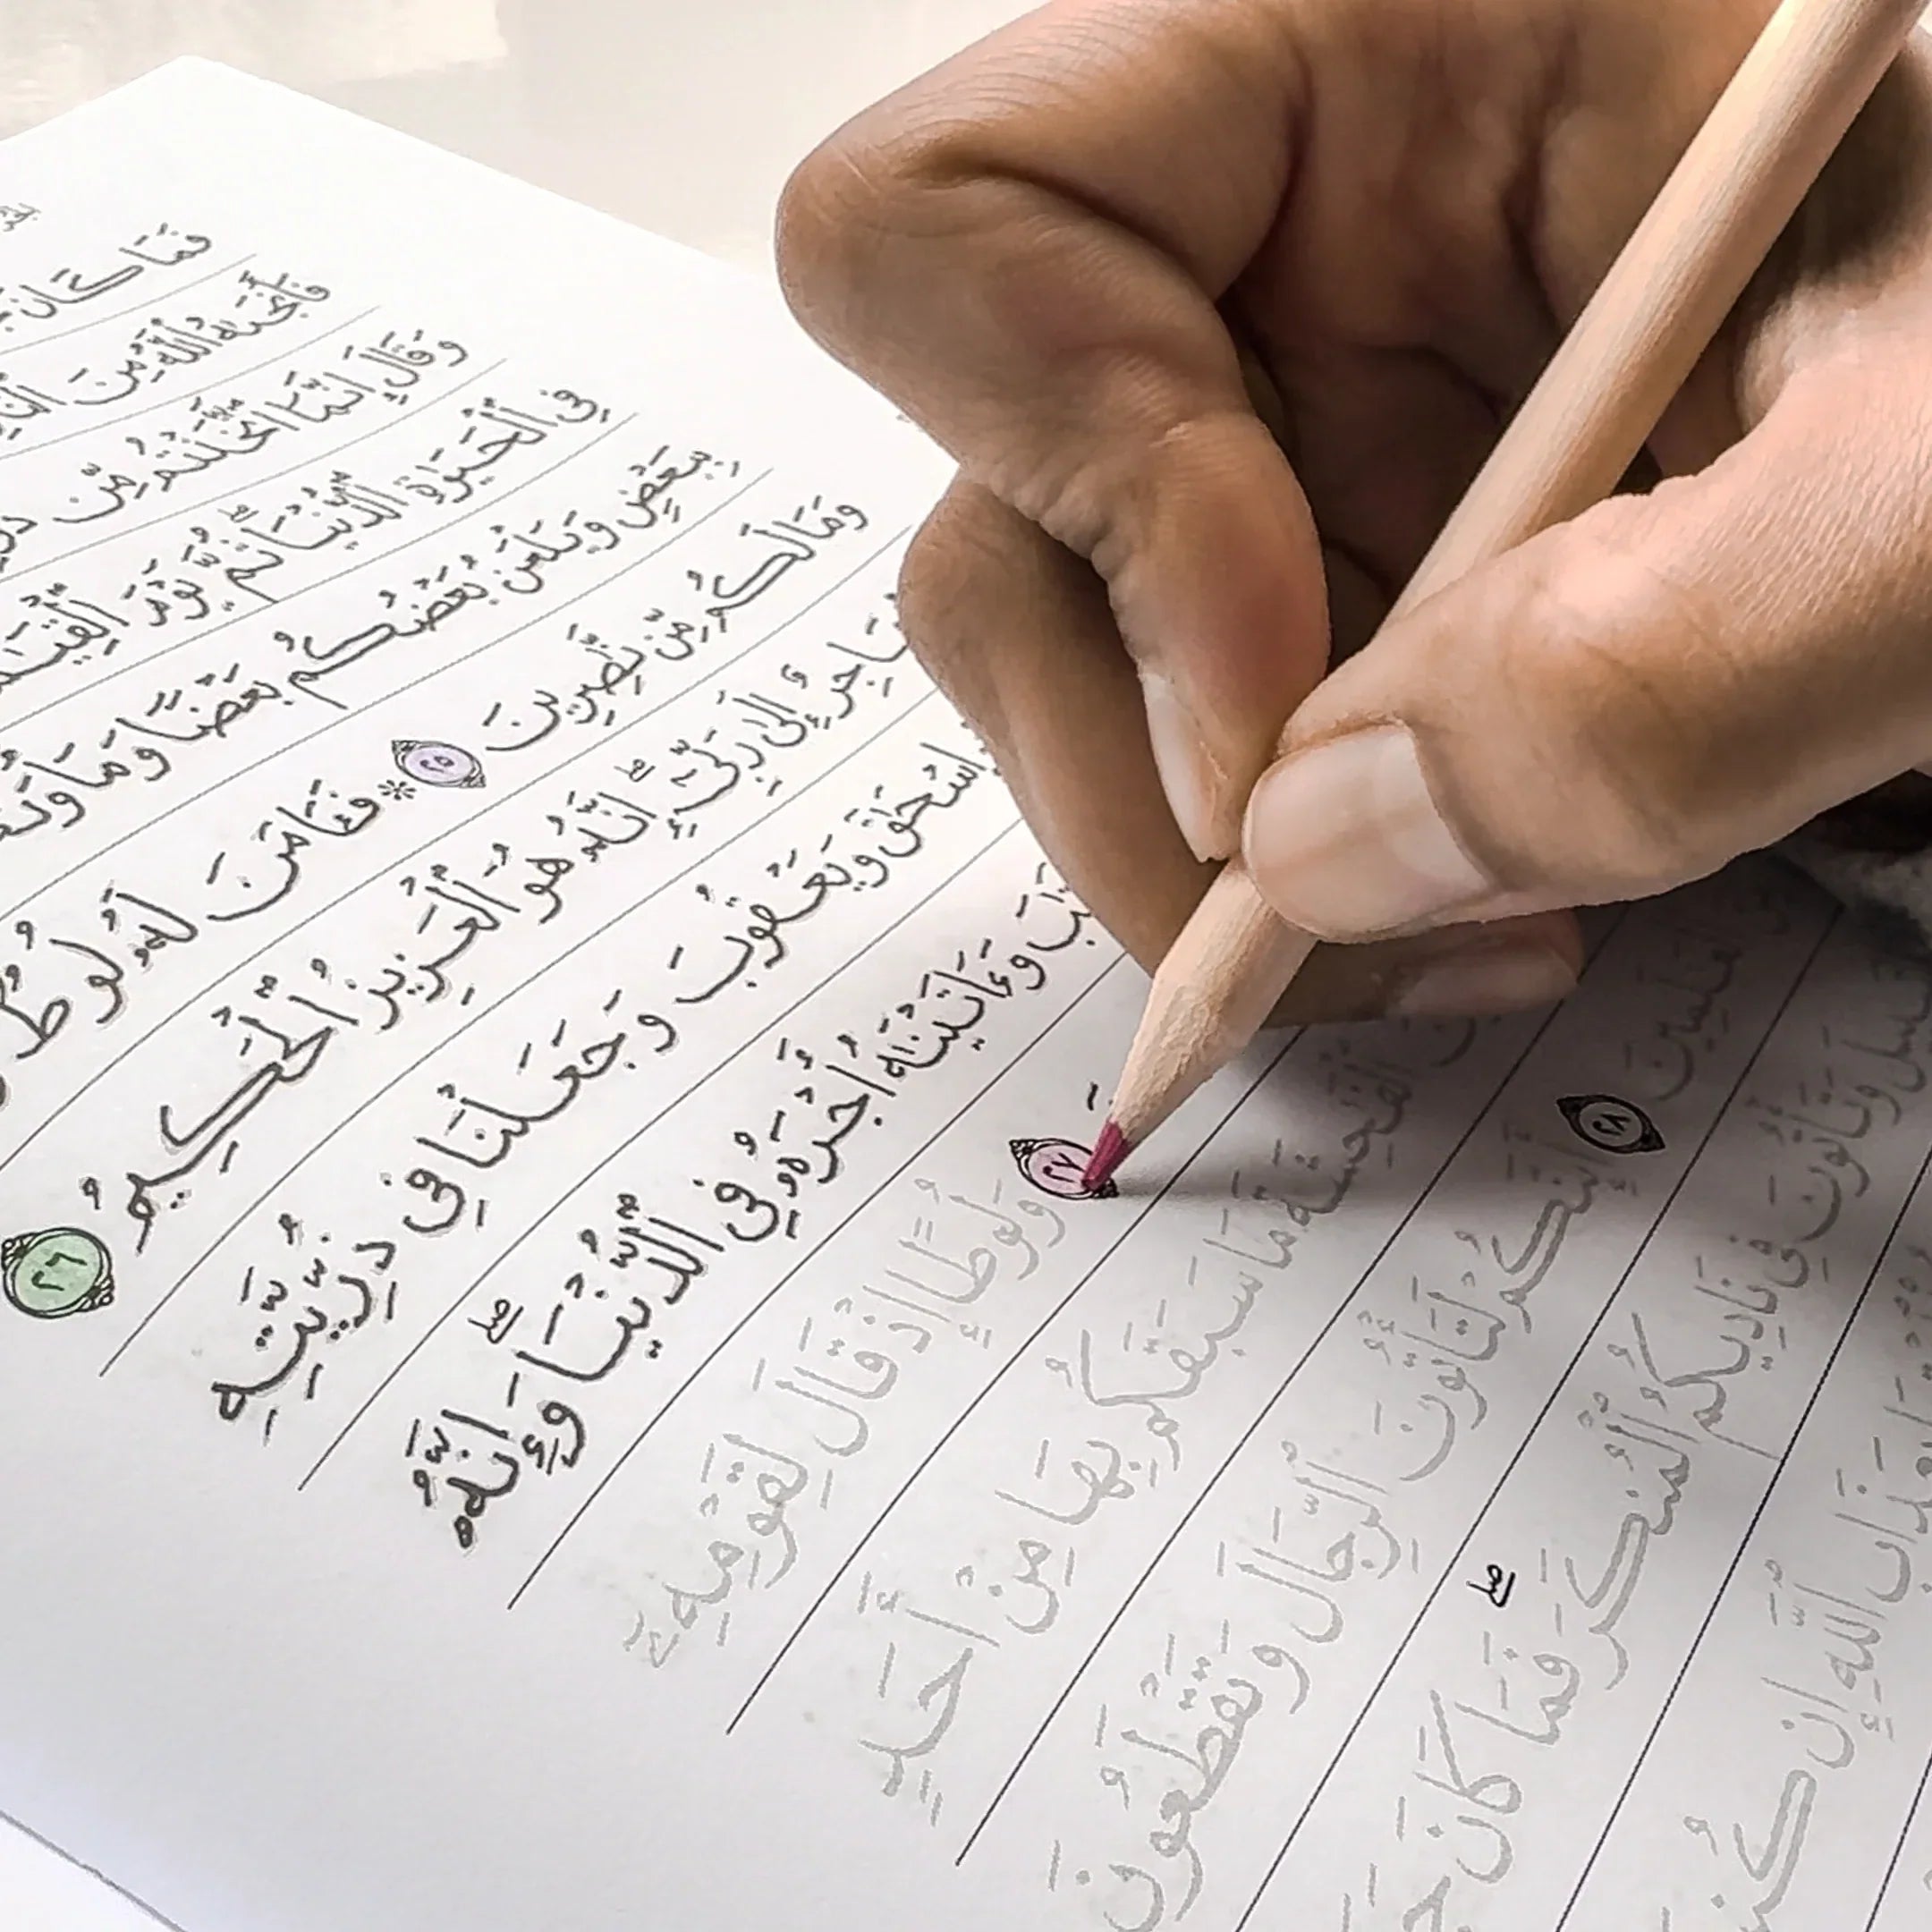 فَمَا كَانَ
فَأَنجَىٰهُ ٱللَّهُ مِنَ
وَقَالَ إِنَّمَا ٱتَّخَذْتُم مِّن
فِى ٱلْحَيَوٰةِ ٱلدُّنْيَا ثُمَّ يَوْمَ
بِبَعْضٍ وَيَلْعَنُ بَعْضُكُم بَعْضًا
وَمَا لَكُم مِّن نَّٰصِرِينَ ٢٥ * فَـَٔامَنَ لَهُۥ لُوطٌ
إِلَىٰ رَبِّىٓ ۖ إِنَّهُۥ هُوَ ٱلْعَزِيزُ ٱلْحَكِيمُ ٢٦
إِسْحَٰقَ وَيَعْقُوبَ وَجَعَلْنَا فِى ذُرِّيَّتِهِ
وَءَاتَيْنَٰهُ أَجْرَهُۥ فِى ٱلدُّنْيَا ۖ وَإِنَّهُۥ
٢٧ وَلُوطًا إِذْ قَالَ لِقَوْمِهِۦٓ
ٱلْفَٰحِشَةَ مَا سَبَقَكُم بِهَا مِنْ أَحَدٍ
ٱلْعَٰلَمِينَ ٢٨ أَئِنَّكُمْ لَتَأْتُونَ ٱلرِّجَالَ وَتَقْطَعُونَ
وَتَأْتُونَ فِى نَادِيكُمُ ٱلْمُنكَرَ ۖ فَمَا كَانَ
بِعَذَابِ ٱللَّهِ إِن